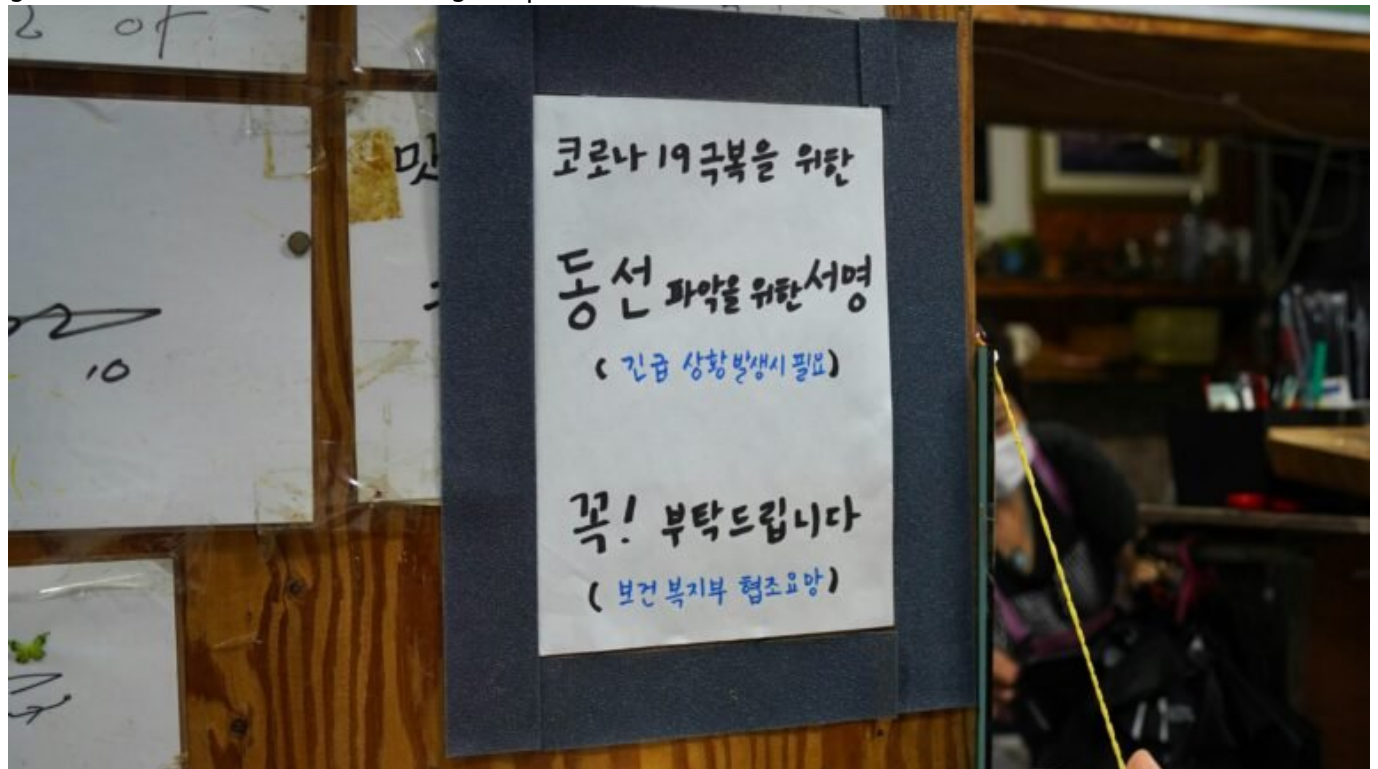 2 of
맛
10
코로나 19 극복을 위한
동선 파악을 위한 서명
( 긴급 상황 발생시 필요)
꼭! 부탁드립니다
( 보건 복지부 협조요망)